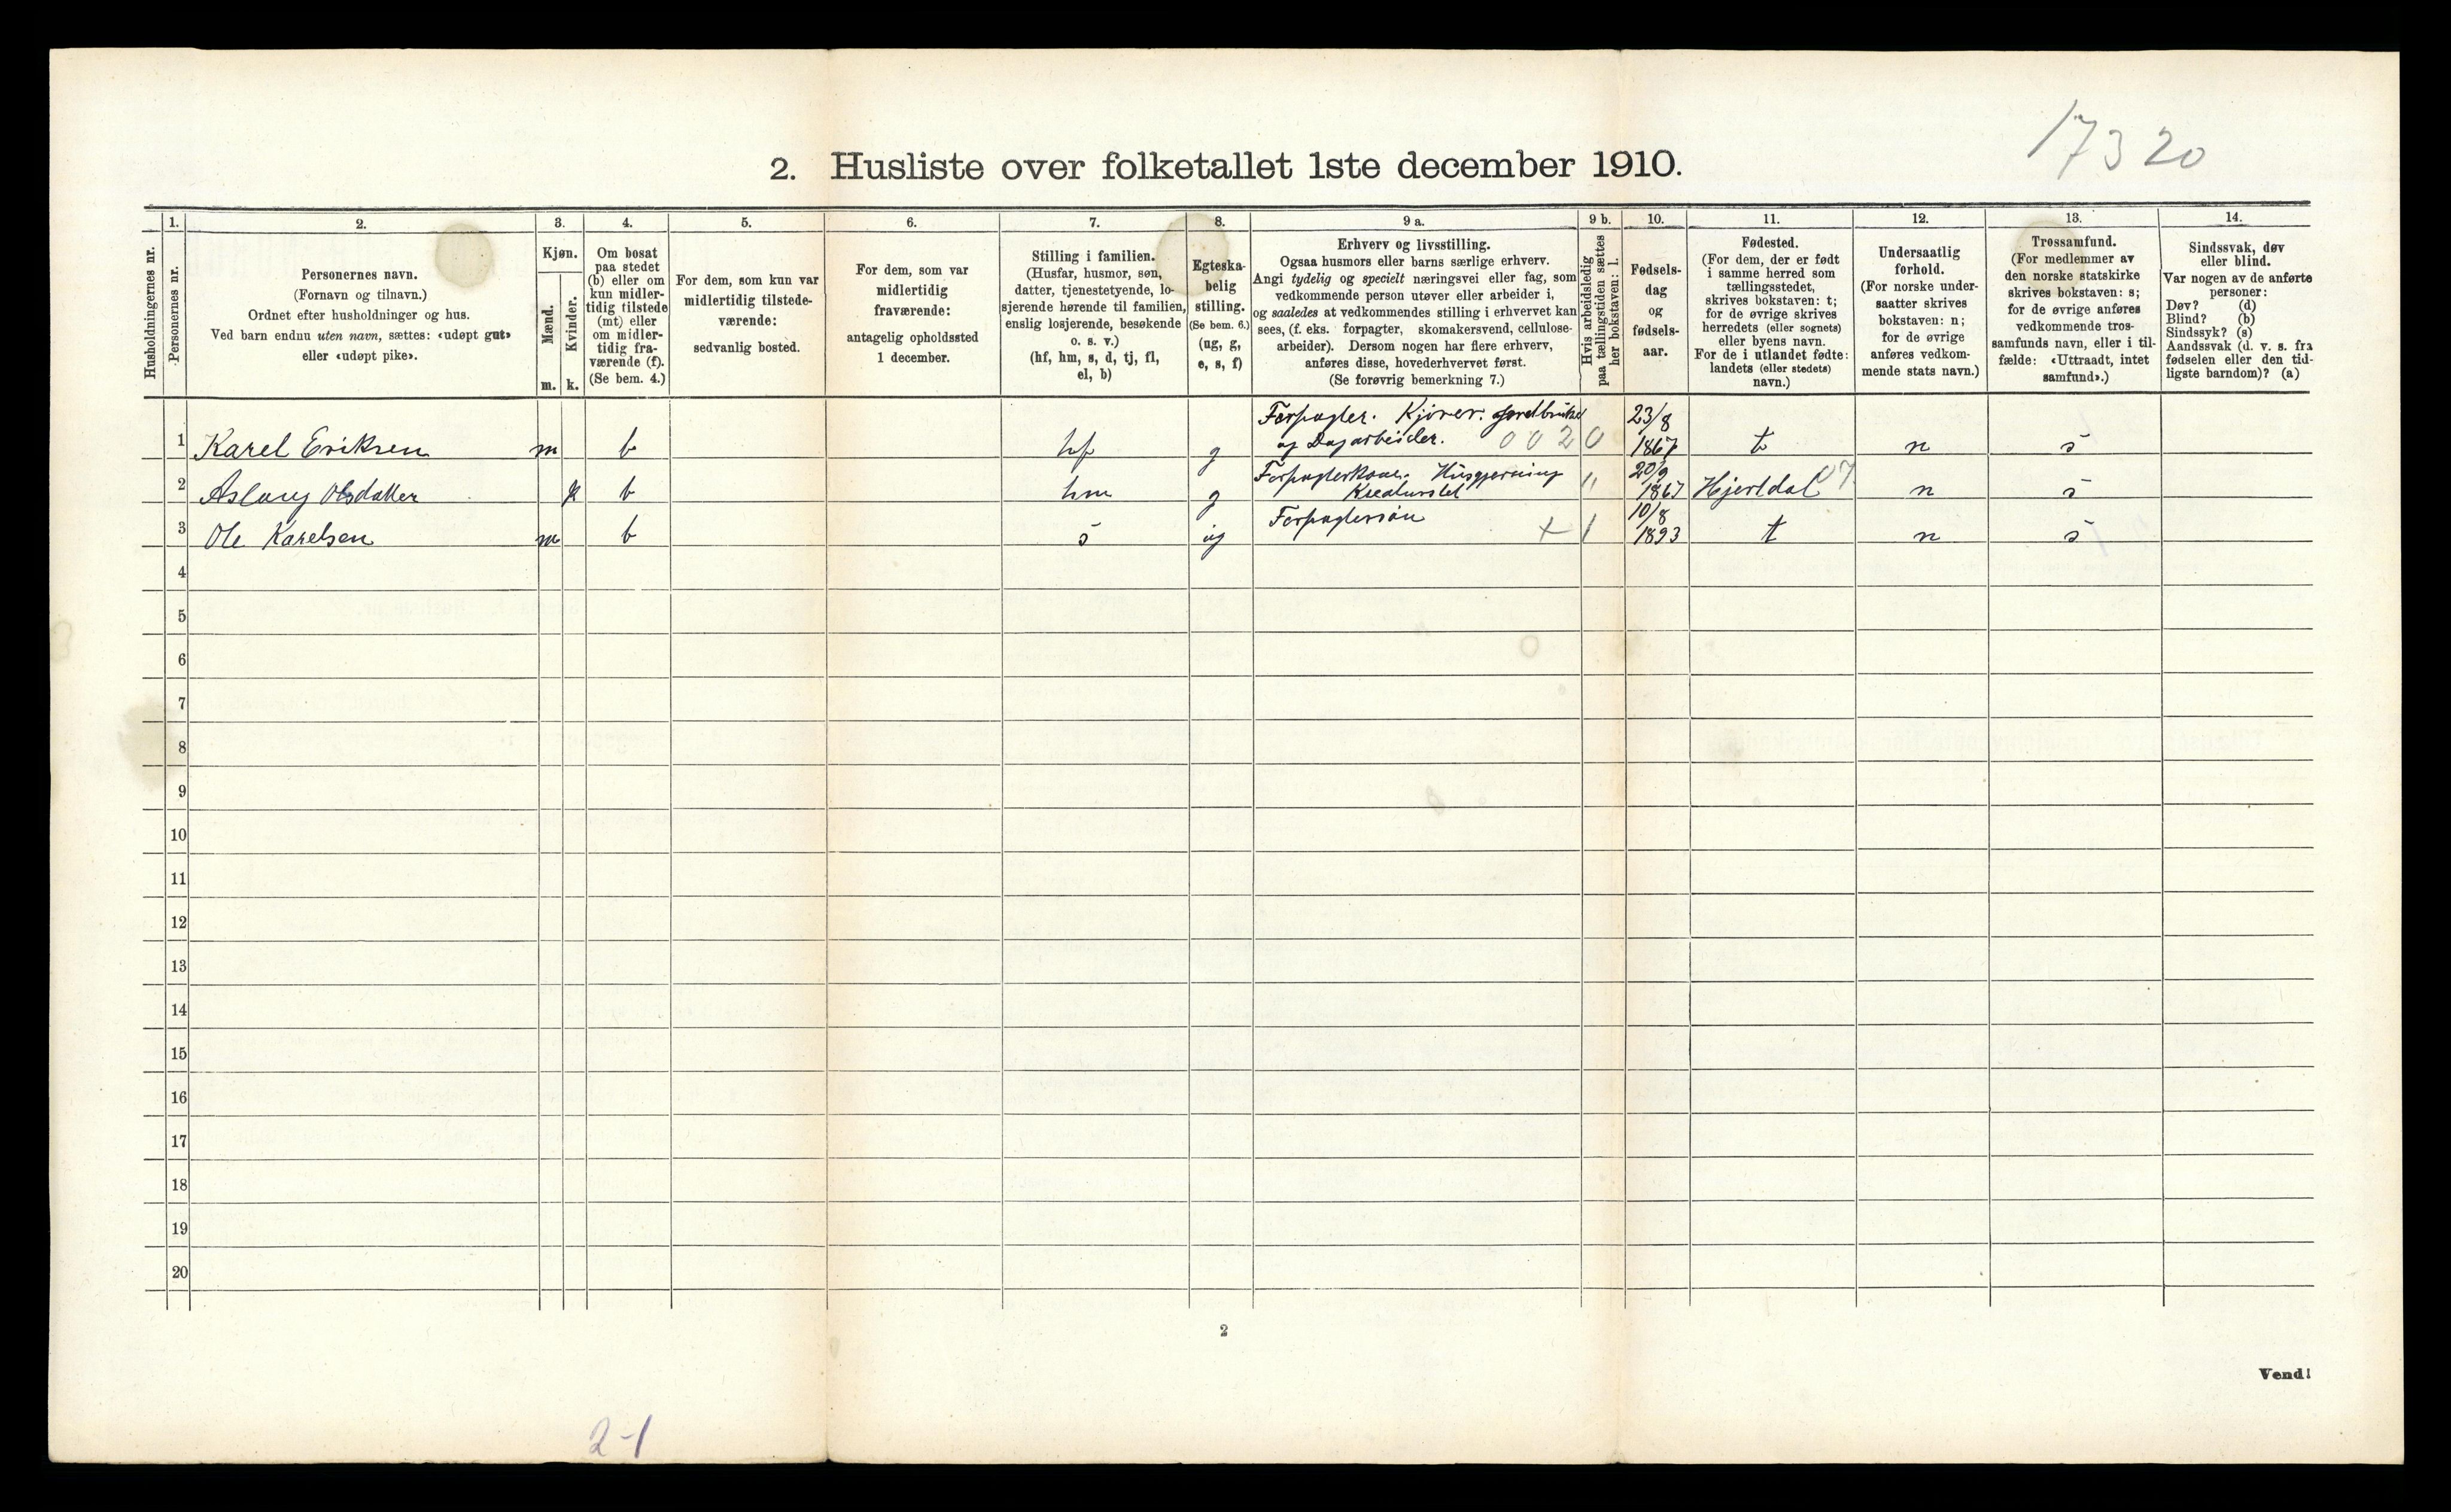 17320
2. Husliste over folketallet 1ste december 1910.
Husholdningernes nr.
1.
Personernes nr.
2.
Personernes navn.
(Fornavn og tilnavn.)
Ordnet efter husholdninger og hus.
Ved barn endnu uten navn, sættes: «udøpt gut»
eller «udøpt pike».
3.
Kjøn.
Mænd.
Kvinder.
m. k.
4.
Om bosat
paa stedet
(b) eller om
kun midler-
tidig tilstede
(mt) eller
om midler-
tidig fra-
værende (f).
(Se bem. 4.)
5.
For dem, som kun var
midlertidig tilstede-
værende:
sedvanlig bosted.
6.
For dem, som var
midlertidig
fraværende:
antagelig opholdssted
1 december.
7.
Stilling i familien.
(Husfar, husmor, søn,
datter, tjenestetyende, lo-
sjerende hørende til familien,
enslig losjerende, besøkende
o. s. v.)
(hf, hm, s, d, tj, fl,
el, b)
8.
Egteska-
belig
stilling.
(Se bem. 6.)
(ug, g,
e, s, f)
9 a.
Erhverv og livsstilling.
Ogsaa husmors eller barns særlige erhverv.
Angi tydelig og specielt næringsvei eller fag, som
vedkommende person utøver eller arbeider i,
og saaledes at vedkommendes stilling i erhvervet kan
sees, (f. eks. forpagter, skomakersvend, cellulose-
arbeider). Dersom nogen har flere erhverv,
anføres disse, hovederhvervet først.
(Se forøvrig bemerkning 7.)
9 b.
Hvis arbeidsledig
paa tællingstiden sættes
her bokstaven: l.
10.
Fødsels-
dag
og
fødsels-
aar.
11.
Fødested.
(For dem, der er født
i samme herred som
tællingsstedet,
skrives bokstaven: t;
for de øvrige skrives
herredets (eller sognets)
eller byens navn.
For de i utlandet fødte:
landets (eller stedets)
navn.)
12.
Undersaatlig
forhold.
(For norske under-
saatter skrives
bokstaven: n;
for de øvrige
anføres vedkom-
mende stats navn.)
13.
Trossamfund.
(For medlemmer av
den norske statskirke
skrives bokstaven: s;
for de øvrige anføres
vedkommende tros-
samfunds navn, eller i til-
fælde: «Uttraadt, intet
samfund».)
14.
Sindssvak, døv
eller blind.
Var nogen av de anførte
personer:
Døv? (d)
Blind? (b)
Sindssyk? (s)
Aandssvak (d. v. s. fra
fødselen eller den tid-
ligste barndom)? (a)
1 Karel Eriksen m b hf g Forpagter. Kjører. Jordbruker og Dagarbeider. 0020 23/8 1867 t n s
2 Aslaug Olsdatter k b hm g Forpagterkone. Husgjerning Kreaturstel " 20/9 1867 Hjertdal 07 n s
3 Ole Karelsen m b s ug Forpagtersøn + 1 10/8 1893 t n s
4
5
6
7
8
9
10
11
12
13
14
15
16
17
18
19
20
2
Vend!
2-1